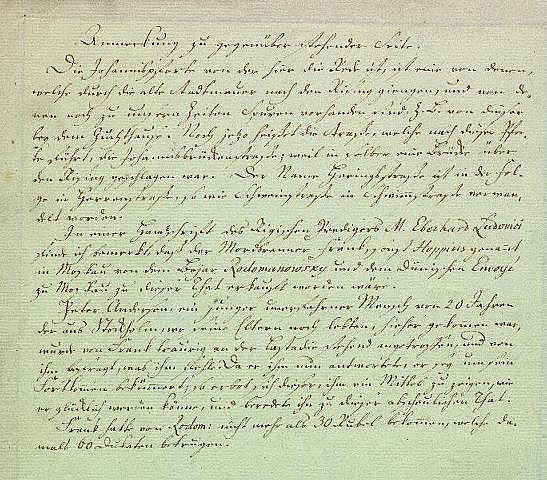 Anmerkung zu gegenüber stehender Seite.
Die Johannispforte von der hier die Rede ist, ist eine von denen,
welche durch die alte Stadtmauer nach dem Rising giengen, und von de-
nen noch zu unsern Zeiten Spuren vorhanden sind, z. B. von dieser
bey dem Zuchthause. Noch jezo heißt die Straße, welche nach dieser Pfor-
te führt, die Johannisbrückenstraße; weil in selber eine Brücke über
den Rising geschlagen war. Der Name Heringsstraße ist in der Fol-
ge in Herrenstraße, so wie Schwemstraße in Schwimmstraße verwan-
delt worden.
In einer Handschrift des Rigischen Predigers M. Eberhard Ludovici
finde ich bemerkt, daß der Mordbrenner Frank, sonst Hoppens genannt
in Moskau von dem Bojar Lodomanowsky und dem Dänischen Envoye
zu Moskau zu dieser That erkauft worden wäre.
Peter Anderson, ein junger unerfahrner Mensch von 20 Jahren
der aus Stockholm, wo seine Eltern noch lebten, hieher gekommen war,
wurde von Frank traurig an der Lastadie stehend angetroffen, und von
ihm befragt, was ihm fehle. Da er ihm nun antwortete: er sey um sein
Fortkomen bekümmert; so erbot sich dieser, ihm ein Mittel zu zeigen, wie
er glücklich werden könne, und beredete ihn zu dieser abscheulichen That.
Frank hatte von Lodom: nicht mehr als 30 Rubel bekomen, welche da-
mals 60 Dukaten betrugen.